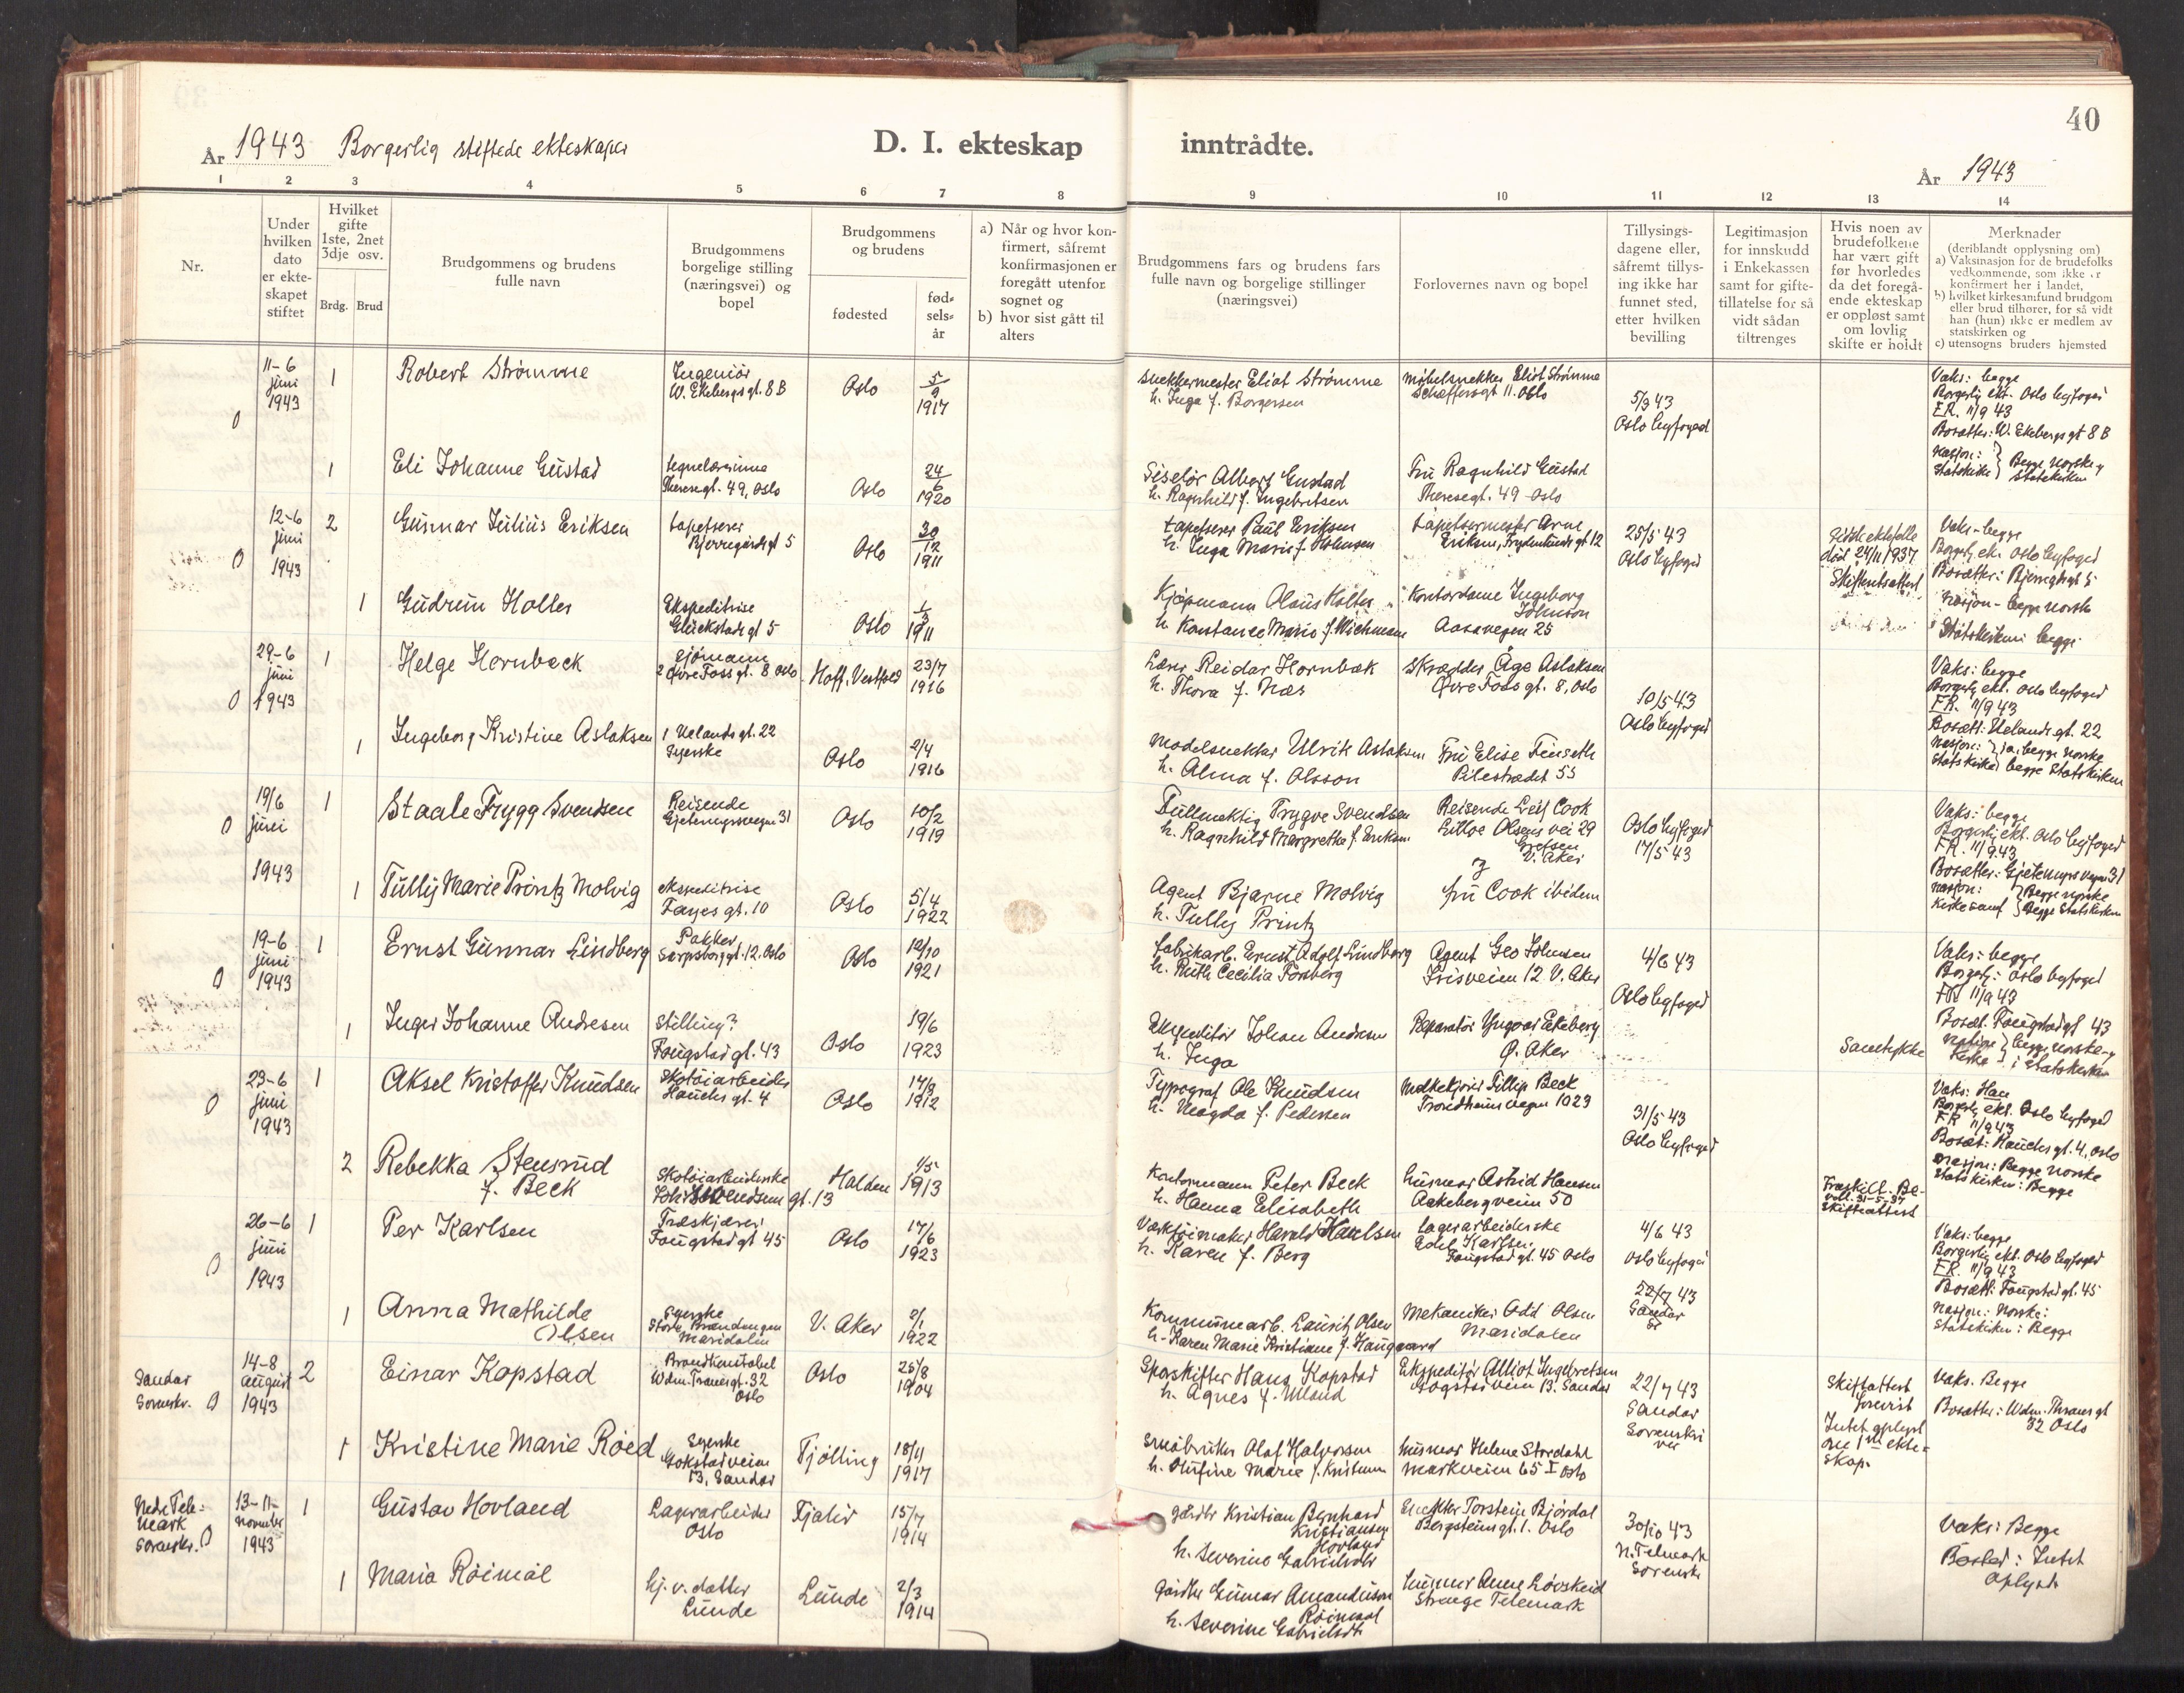 40
År 1943 Borgerlig stiftede ekteskaper
D. I. ekteskap inntrådte.
År 1943
1 2 3 4 5 6 7 8 9 10 11 12 13 14
Nr.
Under hvilken dato er ekteskapet stiftet
Hvilket gifte 1ste, 2net 3dje osv.
Brdg. Brud
Brudgommens og brudens fulle navn
Brudgommens borgelige stilling (næringsvei) og bopel
Brudgommens og brudens
fødested
fød-sels-år
a) Når og hvor konfirmert, såfremt konfirmasjonen er foregått utenfor sognet og
b) hvor sist gått til alters
Brudgommens fars og brudens fars fulle navn og borgelige stillinger (næringsvei)
Forlovernes navn og bopel
Tillysingsdagene eller, såfremt tillysing ikke har funnet sted, etter hvilken bevilling
Legitimasjon for innskudd i Enkekassen samt for giftetillatelse for så vidt sådan tiltrenges
Hvis noen av brudefolkene har vært gift før hvorledes da det foregående ekteskap er oppløst samt om lovlig skifte er holdt
Merknader
(deriblandt opplysning om)
a) Vaksinasjon for de brudefolks vedkommende, som ikke er konfirmert her i landet,
b) hvilket kirkesamfund brudgom eller brud tilhører, for så vidt han (hun) ikke er medlem av statskirken og
c) utensogns bruders hjemsted
11-6 juni 1943
0
1
Robert Strømme
Ingeniör
W. Ekebergs gt. 8 B
Oslo
5/9 1917
Snekkermester Eliot Strömme
h. Inga f. Borgersen
Möbelsnekker Eliot Strömme
Schæffersgt 11. Oslo
5/3 43
Oslo byfoged
Vaks: begge
Borgerlig ekt. Oslo byfoged
F.R. 11/9 43
Bosætter: W. Ekebergs gt 8 B
Nasjon: Statskirke } Begge norske
Statskirken
1
Eli Johanne Gustad
tegnelærerinne
Theresegt. 49, Oslo
Oslo
24/6 1920
Siselör Albert Gustad
h. Ragnhild f. Ingebretsen
Fru Ragnhild Gustad
Theresegt. 49 Oslo
12-6 juni 1943
0
2
Gunnar Julius Eriksen
tapetserer
Bjerregårds gt 5
Oslo
30/12 1911
tapetserer Paul Eriksen
h. Inga Marie f.
tapetsermester Arne
Eriksen, Frydenlunds gt 12
25/5 43
Oslo byfoged
død 24/11 1937
Skifteattest
Vaks - begge
Borgerlig ekt. Oslo byfoged
Bosætter: Bjerregdsgt 5
nasjon - begge norske
Statskirken begge
1
Gudrun Holter
Ekspeditrise
Glückstads gt 5
Oslo
1/3 1911
Kjöpmann Olaus Holter
h. Konstance Marie f. Wichmann
Kontordame Ingeborg
Johnson
Aasavegen 25
29-6 juni 1943
0
1
Helge Hornbæck
Sjömann
Øvre Foss gt. 8 Oslo
Hoff, Vestfold
23/7 1916
Lærer Reidar Hornbæk
h. Thora f. Næs
Skrædder Åge Aslaksen
Øvre Foss gt. 8, Oslo
10/5 43
Oslo byfoged
Vaks: begge
Borgerlig ekt. Oslo byfoged
F.R. 11/9 43
Bosatt: Uelands gt. 22
Nasjon: } ja, begge norske
Statskirke begge Statskirken
1
Ingeborg Kristine Aslaksen
Uelands gt. 22
Syerske
Oslo
2/4 1916
Modelsnekker Ulrik Aslaksen
h. Alma f. Olsson
Fru Elise Finseth
Pilestrædet 55
19/6 juni 1943
0
1
Staale Trygg Svendsen
Reisende
Gjetemyrsvegen 31
Oslo
10/2 1919
Fullmektig Trygve Svendsen
h. Ragnhild Margrethe f. Eriksen
Reisende Leif Cook
Lilloe Olsens vei 29
Grefsen
V. Aker
Oslo byfoged
17/5 43
Vaks: begge
Borgerlig ekt. Oslo byfoged
F.R. 11/9.43
Bosætter: Gjetemyrsvegen 31
Nasjon: } Begge norske
Kirkesamf } Begge Statskirken
1
Tully Marie Printz Molvig
ekspeditrise
Fayes gt. 10
Oslo
5/4 1922
Agent Bjarne Molvig
h. Tully Printz
fru Cook ibidem
19-6 juni 1943
0
1
Ernst Gunnar Lindberg
Pakker
Sarpsborggt. 12. Oslo
Oslo
12/10 1921
fabrikarb. Ernst Adolf Lindberg
h. Ruth Cecilia Forsberg
Agent Geo Johnsen
Irisveien 12 V. Aker
4/6 43
Oslo byfoged
Vaks: begge
Borgerlig: Oslo byfoged
FR 11/9 43
Bosat. Fougstadgt 43
begge norske
i Statskirken
1
Inger Johanne Andresen
Stilling?
Fougstad gt. 43
Oslo
19/6 1923
Ekspeditör Johan Andresen
h. Inga
Reparatör Yngvar Ekeberg
Ø. Aker
Samtykke
23-6 juni 1943
0
1
Aksel Kristoffer Knudsen
Skotöiarbeider
Hauchs gt. 4
Oslo
14/9 1912
Typograf Ole Knudsen
h. Magda f. Pedersen
Melkekjörer Fillip Beck
Trondheimsvegen 1023
31/5 43
Oslo byfoged
Vaks: Han
Borgerlig ekt. Oslo byfoged
F.R 11/9 43
Bosat: Hauchs gt. 4, Oslo
Nasjon: Begge norske
Statskirken: Begge
2
Rebekka Stensrud
f. Beck
Skotöiarbeiderske
Johs Svendsens gt. 13
Halden
1/5 1913
Kontormann Peter Beck
h. Hanna Elisabeth
husmor Astrid Hansen
Aakebergveien 50
Fraskilt. Be-
vill. 31-5-37
Skifteattest
26-6 juni 1943
0
1
Per Karlsen
Træskjærer
Fougstad gt 45
Oslo
17/6 1923
Værktöimaker Harald Karlsen
h. Karen f. Berg
Lagerarbeiderske
Edel Karlsen
Fougstad gt. 45 Oslo
4/6 43
Oslo byfoged
Vaks: begge
Borgerlig ekt. Oslo byfoged
F.R. 11/9 43
Bosatt: Fougstad gt. 45
Nasjon: Norske:
Statskirken: Begge
1
Anna Mathilde
Olsen
Syerske
Store Brændengen
Maridalen
V. Aker
2/1 1922
Kommunearb. Lauritz Olsen
h. Karen Marie Kristiane f. Haugaard
Mekaniker Odd Olsen
Maridalen
22/7 43
Sandar
Sandar
Sorenskr. 0
14-8 august 1943
2
Einar Kopstad
Brandkonstabel
Wdm. Thranesgt. 32
Oslo
Oslo
25/8 1904
Sporskifter Hans Kopstad
h. Agnes f. Ulland
Ekspeditör Alliot Ingebretsen
Gogstadveien 13. Sandar
22/7 43
Sandar
Sorenskri
ver
Skifteattest
forevist
Intet oplyst
om 1ste ekte-
skap.
Vaks. Begge
Bosætter: Wdm. Thranes gt
32 Oslo
1
Kristine Marie Röed
Syerske
Gokstadveien
13, Sandar
Tjölling
18/11 1917
Småbruker Olaf Halvorsen
h. Olufine Marie f. Kristensen
husmor Helene Stordahl
Markveien 65 I Oslo
Nedre Tele-
mark
Sorenskr. 0
13-11 November 1943
1
Gustav Hovland
Lagerarbeider
Oslo
Fjaler
15/7 1914
gårdbr Kristian Bernhard
Kristiansen
Hovland
h. Severine Gabrielsdtr
Snekker Torstein Bjørdal
Bergsteinsgt. 1. Oslo
30/10 43
N. Telemark
Sorenskr
Vaks: Begge
Bosted: Intet
oplyst
1
Maria Röimål
hj. v. datter
Lunde
Lunde
2/3 1914
gårdbr Gunnar Amundsson
Röimaal
h. Severine Gabrielsdtr
husmor Anne Lövskeid
Strænge Telemark